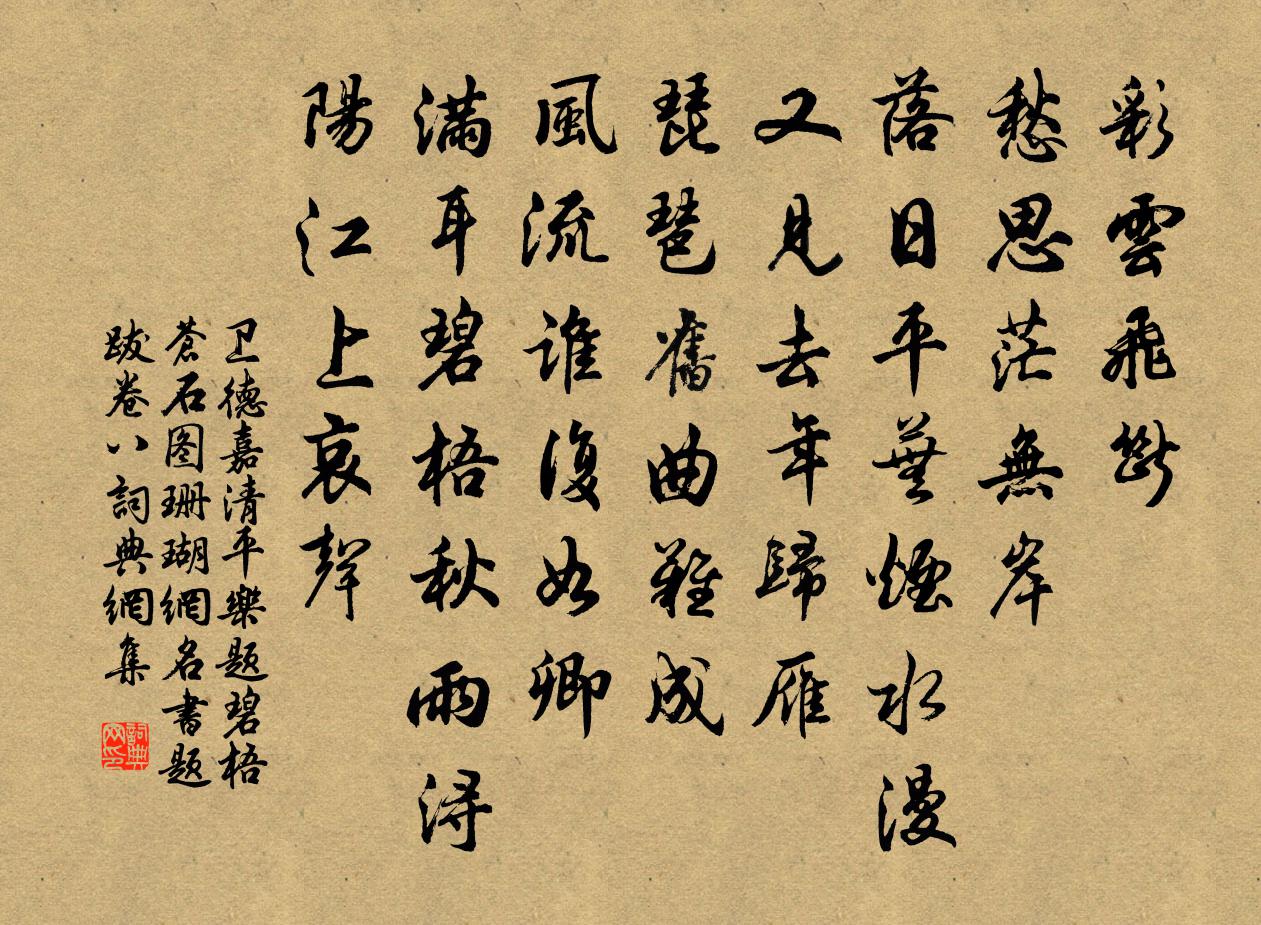 彩雲飛斷
愁思茫無岸
落日平蕪煙水漫
又見去年歸雁
琵琶舊曲難成
風流誰復如卿
滿耳碧梧秋雨潯
陽江上哀聲
卫德嘉清平樂題碧梧
蒼石图珊瑚網名書題
跋卷八詞典網集
詞典网印